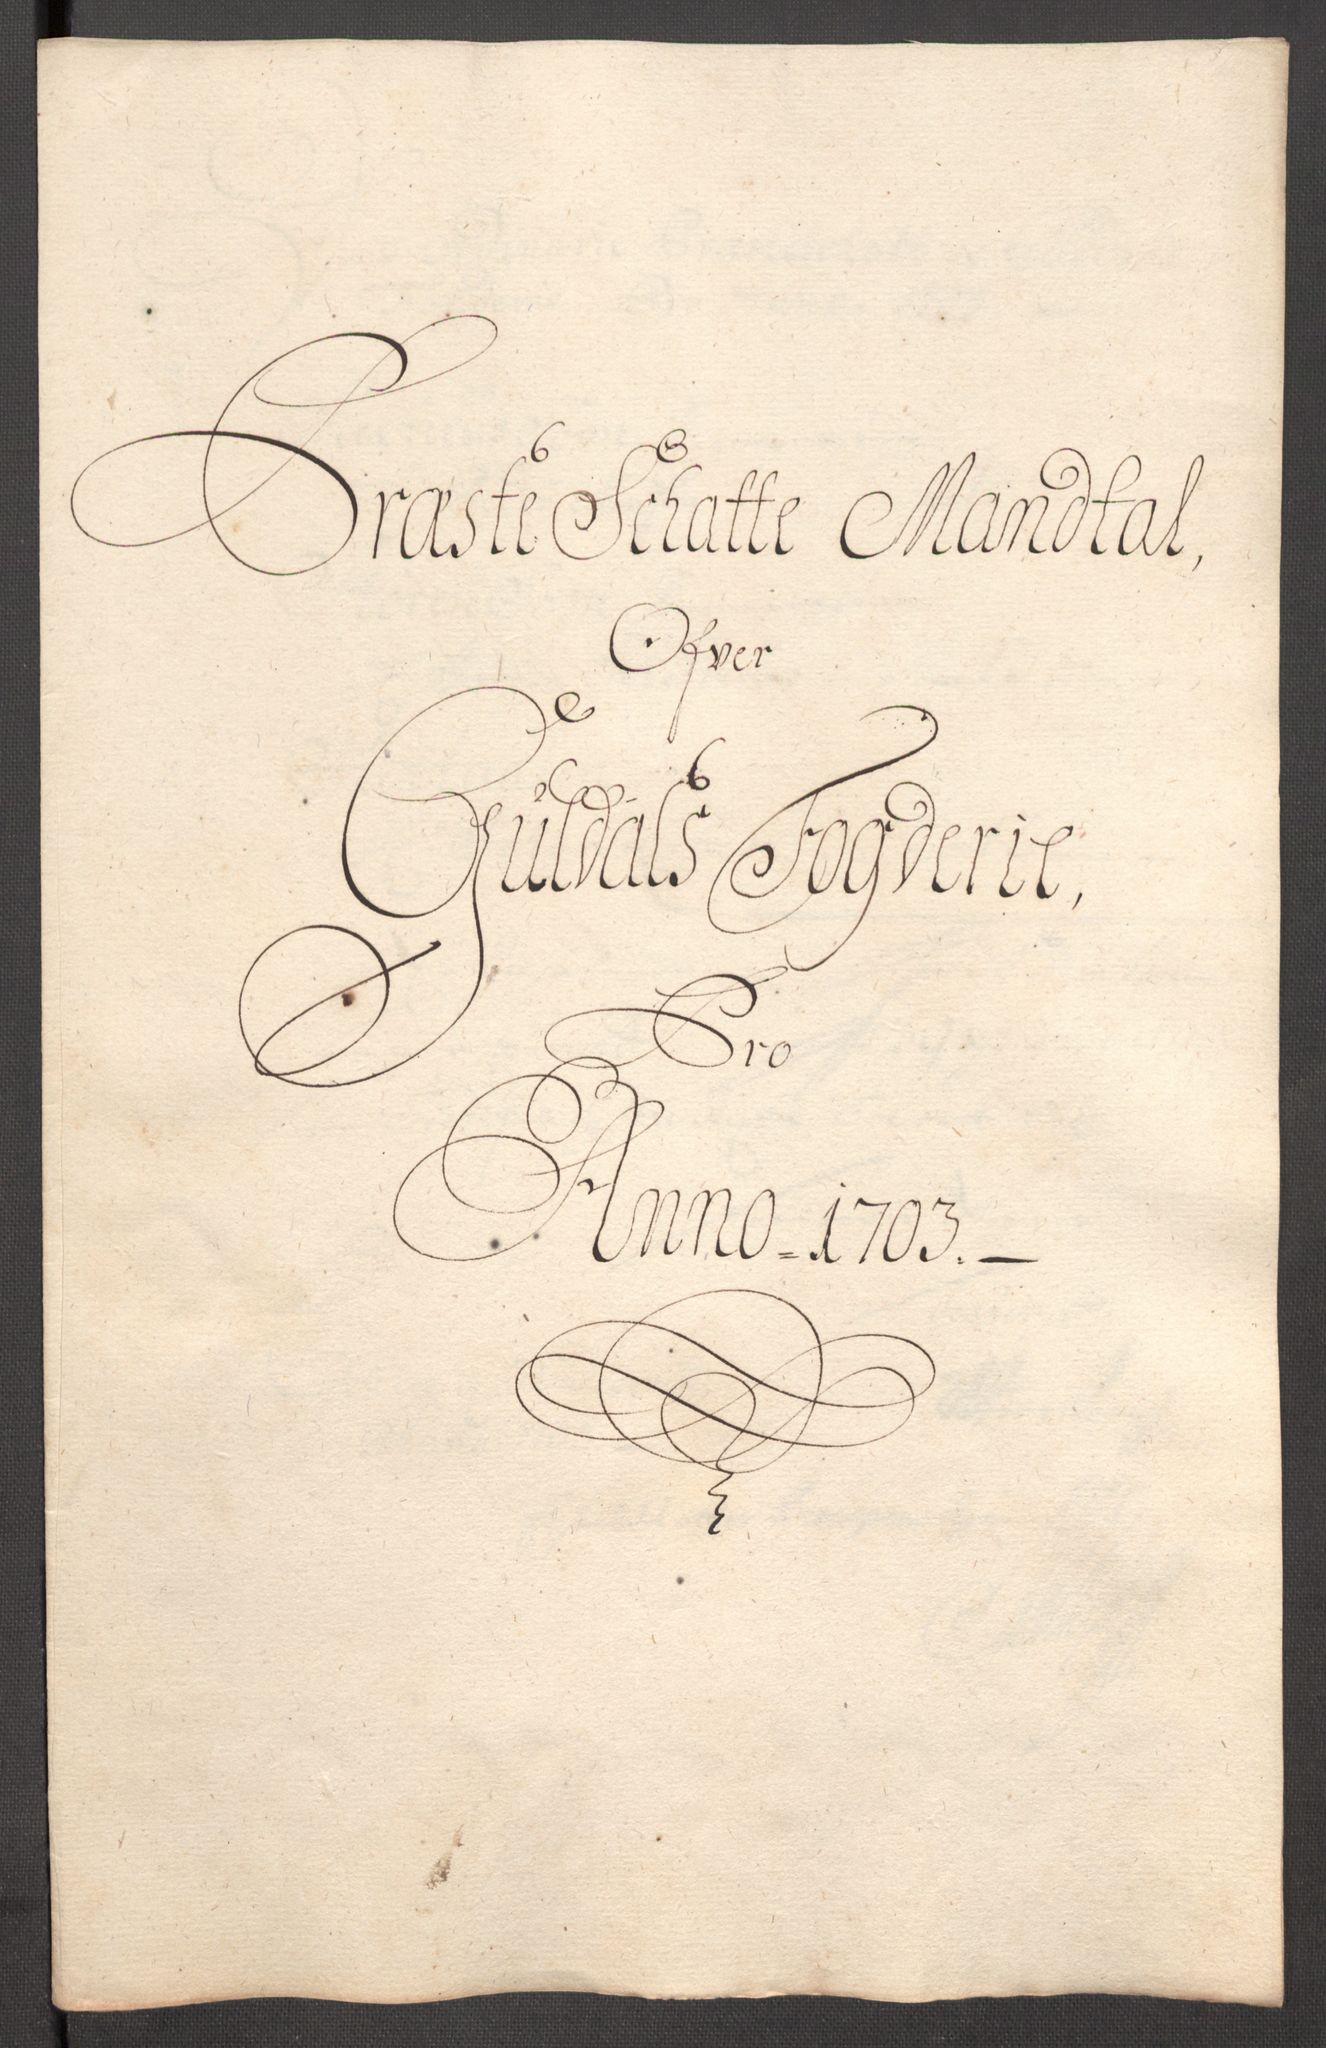 Præste Schatte Mandtal,
Ofver
Guldals Fogderie,
Pro
Anno = 1703. —